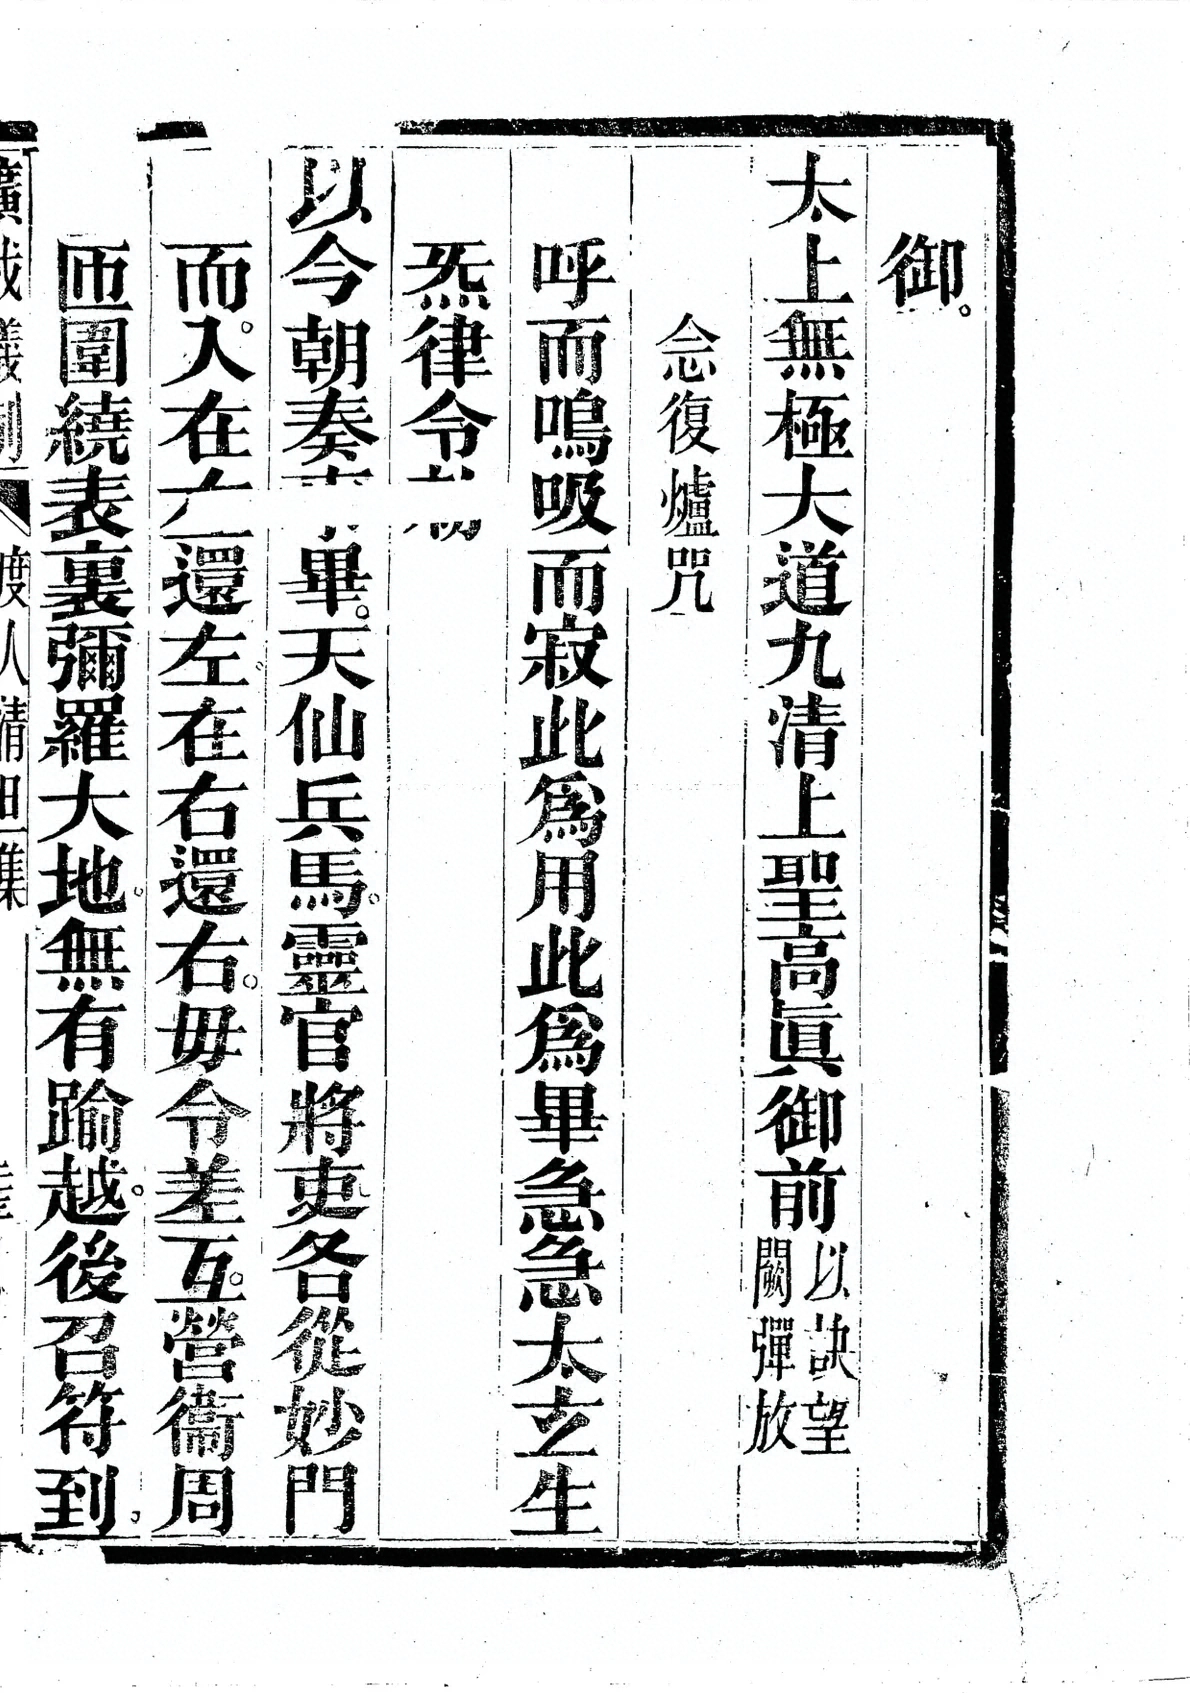 御。
太上無極大道九清上聖高眞御前以訣望闕彈放
念復爐咒
呼而嗚吸而寂此爲用此爲畢急急太玄生
炁律令
以今朝奏畢。天仙兵馬。靈官將吏各從妙門
而入。在左還左。在右還右。毋令差互。營衞周
匝圍繞表裏彌羅大地。無有踰越。後召符到。
廣成儀制度人清旦集